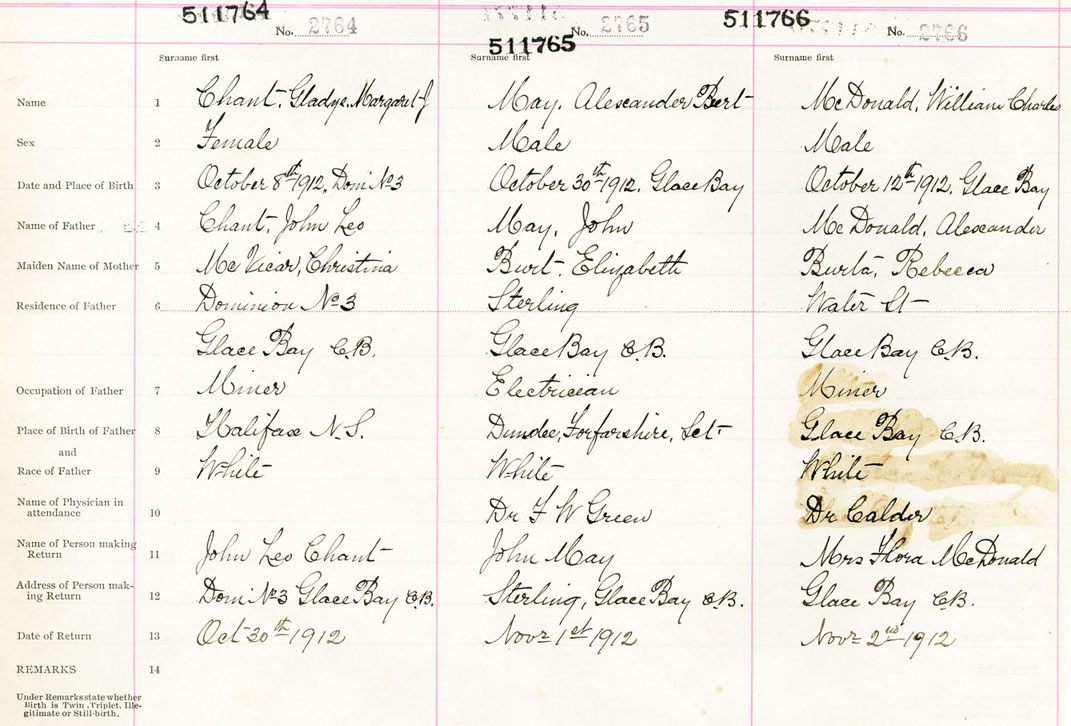 511764 511765 511766
No. 2764 No. 2765 No. 2766
Surname first Surname first Surname first
Name 1 Chant, Gladys, Margaret J May, Alexander Bert McDonald, William Charle
Sex 2 Female Male Male
Date and Place of Birth 3 October 8th 1912, Dom: No 3 October 30th 1912, Glace Bay October 12th 1912, Glace Bay
Name of Father 4 Chant, John Leo May, John McDonald, Alexander
Maiden Name of Mother 5 Mc Vicar, Christina Burt, Elizabeth Burta, Rebecca
Residence of Father 6 Dominion No 3 Sterling Water St
Glace Bay C.B. Glace Bay C.B. Glace Bay C.B.
Occupation of Father 7 Miner Electrician Miner
Place of Birth of Father 8 Halifax N.S. Dundee, Forfarshire, Sct Glace Bay C.B.
and
Race of Father 9 White White White
Name of Physician in
attendance 10 Dr F W Green Dr Calder
Name of Person making
Return 11 John Leo Chant John May Mrs Flora McDonald
Address of Person mak-
ing Return 12 Dom: No 3 Glace Bay C.B. Sterling, Glace Bay C.B. Glace Bay C.B.
Date of Return 13 Oct 30th 1912 Novr 1st 1912 Novr 2nd 1912
REMARKS 14
Under Remarks state whether
Birth is Twin, Triplet, Ille-
gitimate or Still-birth.